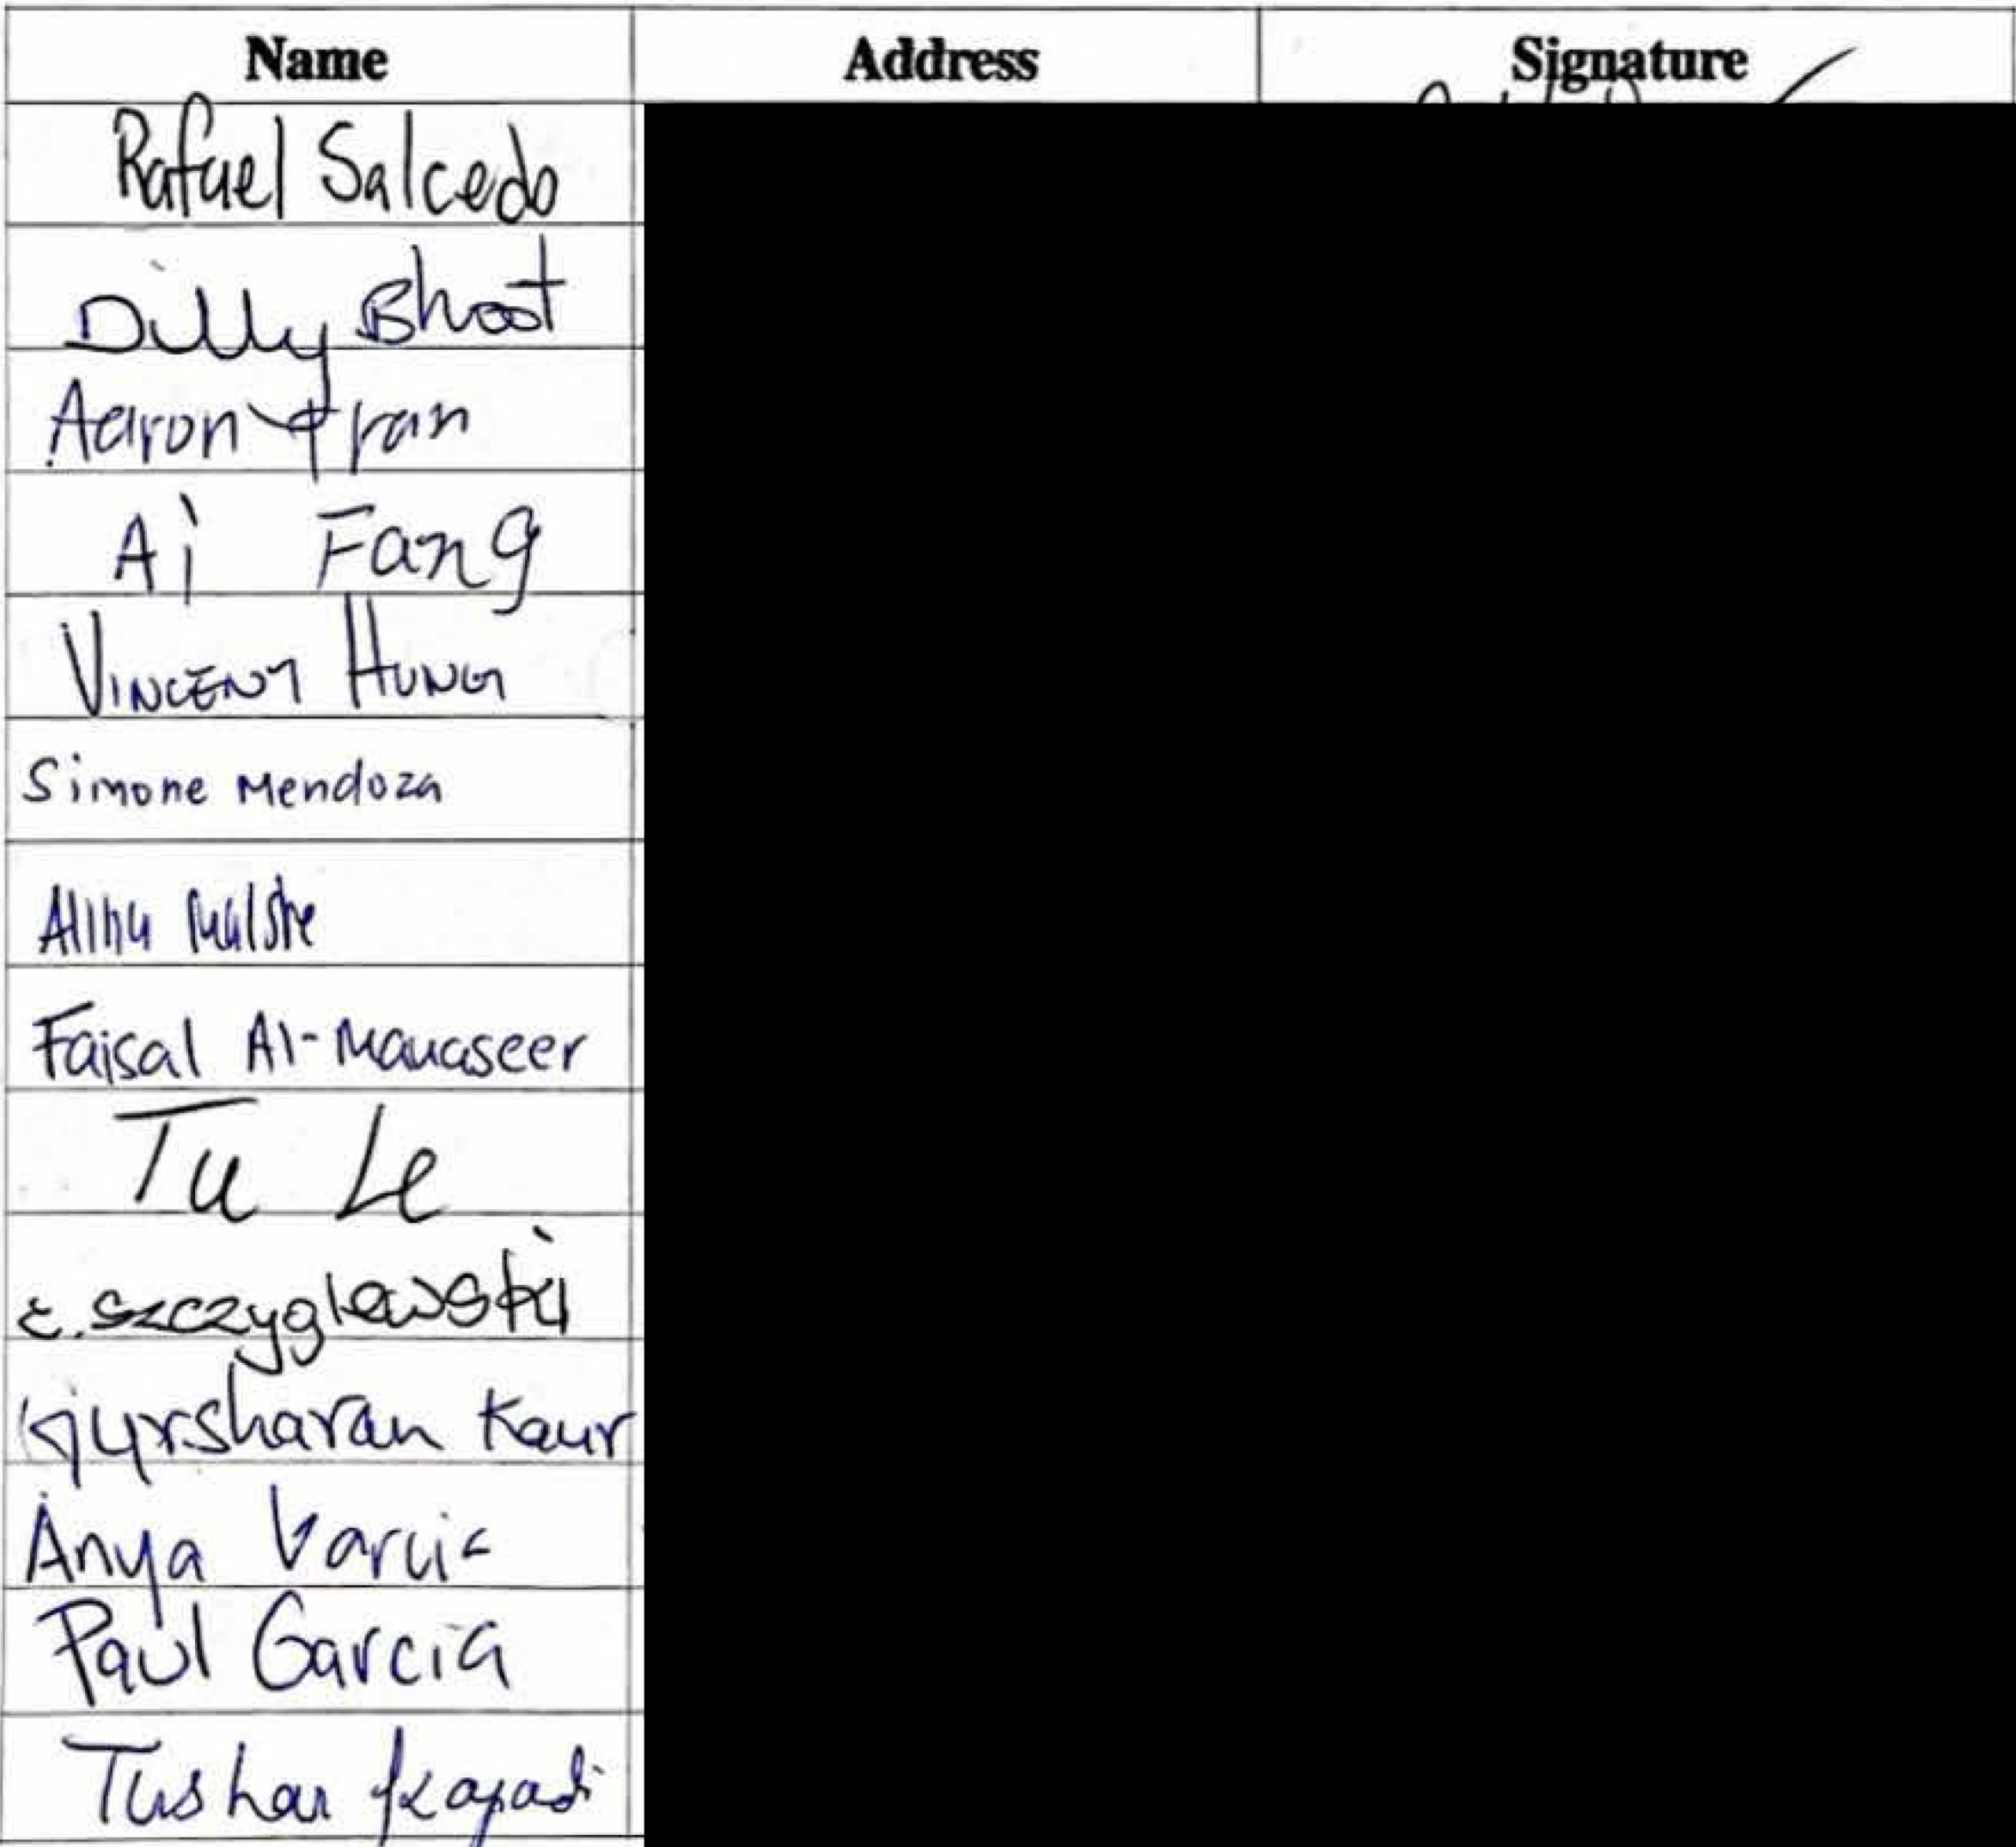 Name Address Signature
Rafael Salcedo
Dilly Bhoot
Aaron Tran
Ai Fang
VINCENT HUNG
Simone Mendoza
Alina
Faisal Al-Manaseer
Tu Le
E. Szczyglewski
Gursharan Kaur
Anya
Paul Garcia
Tushar